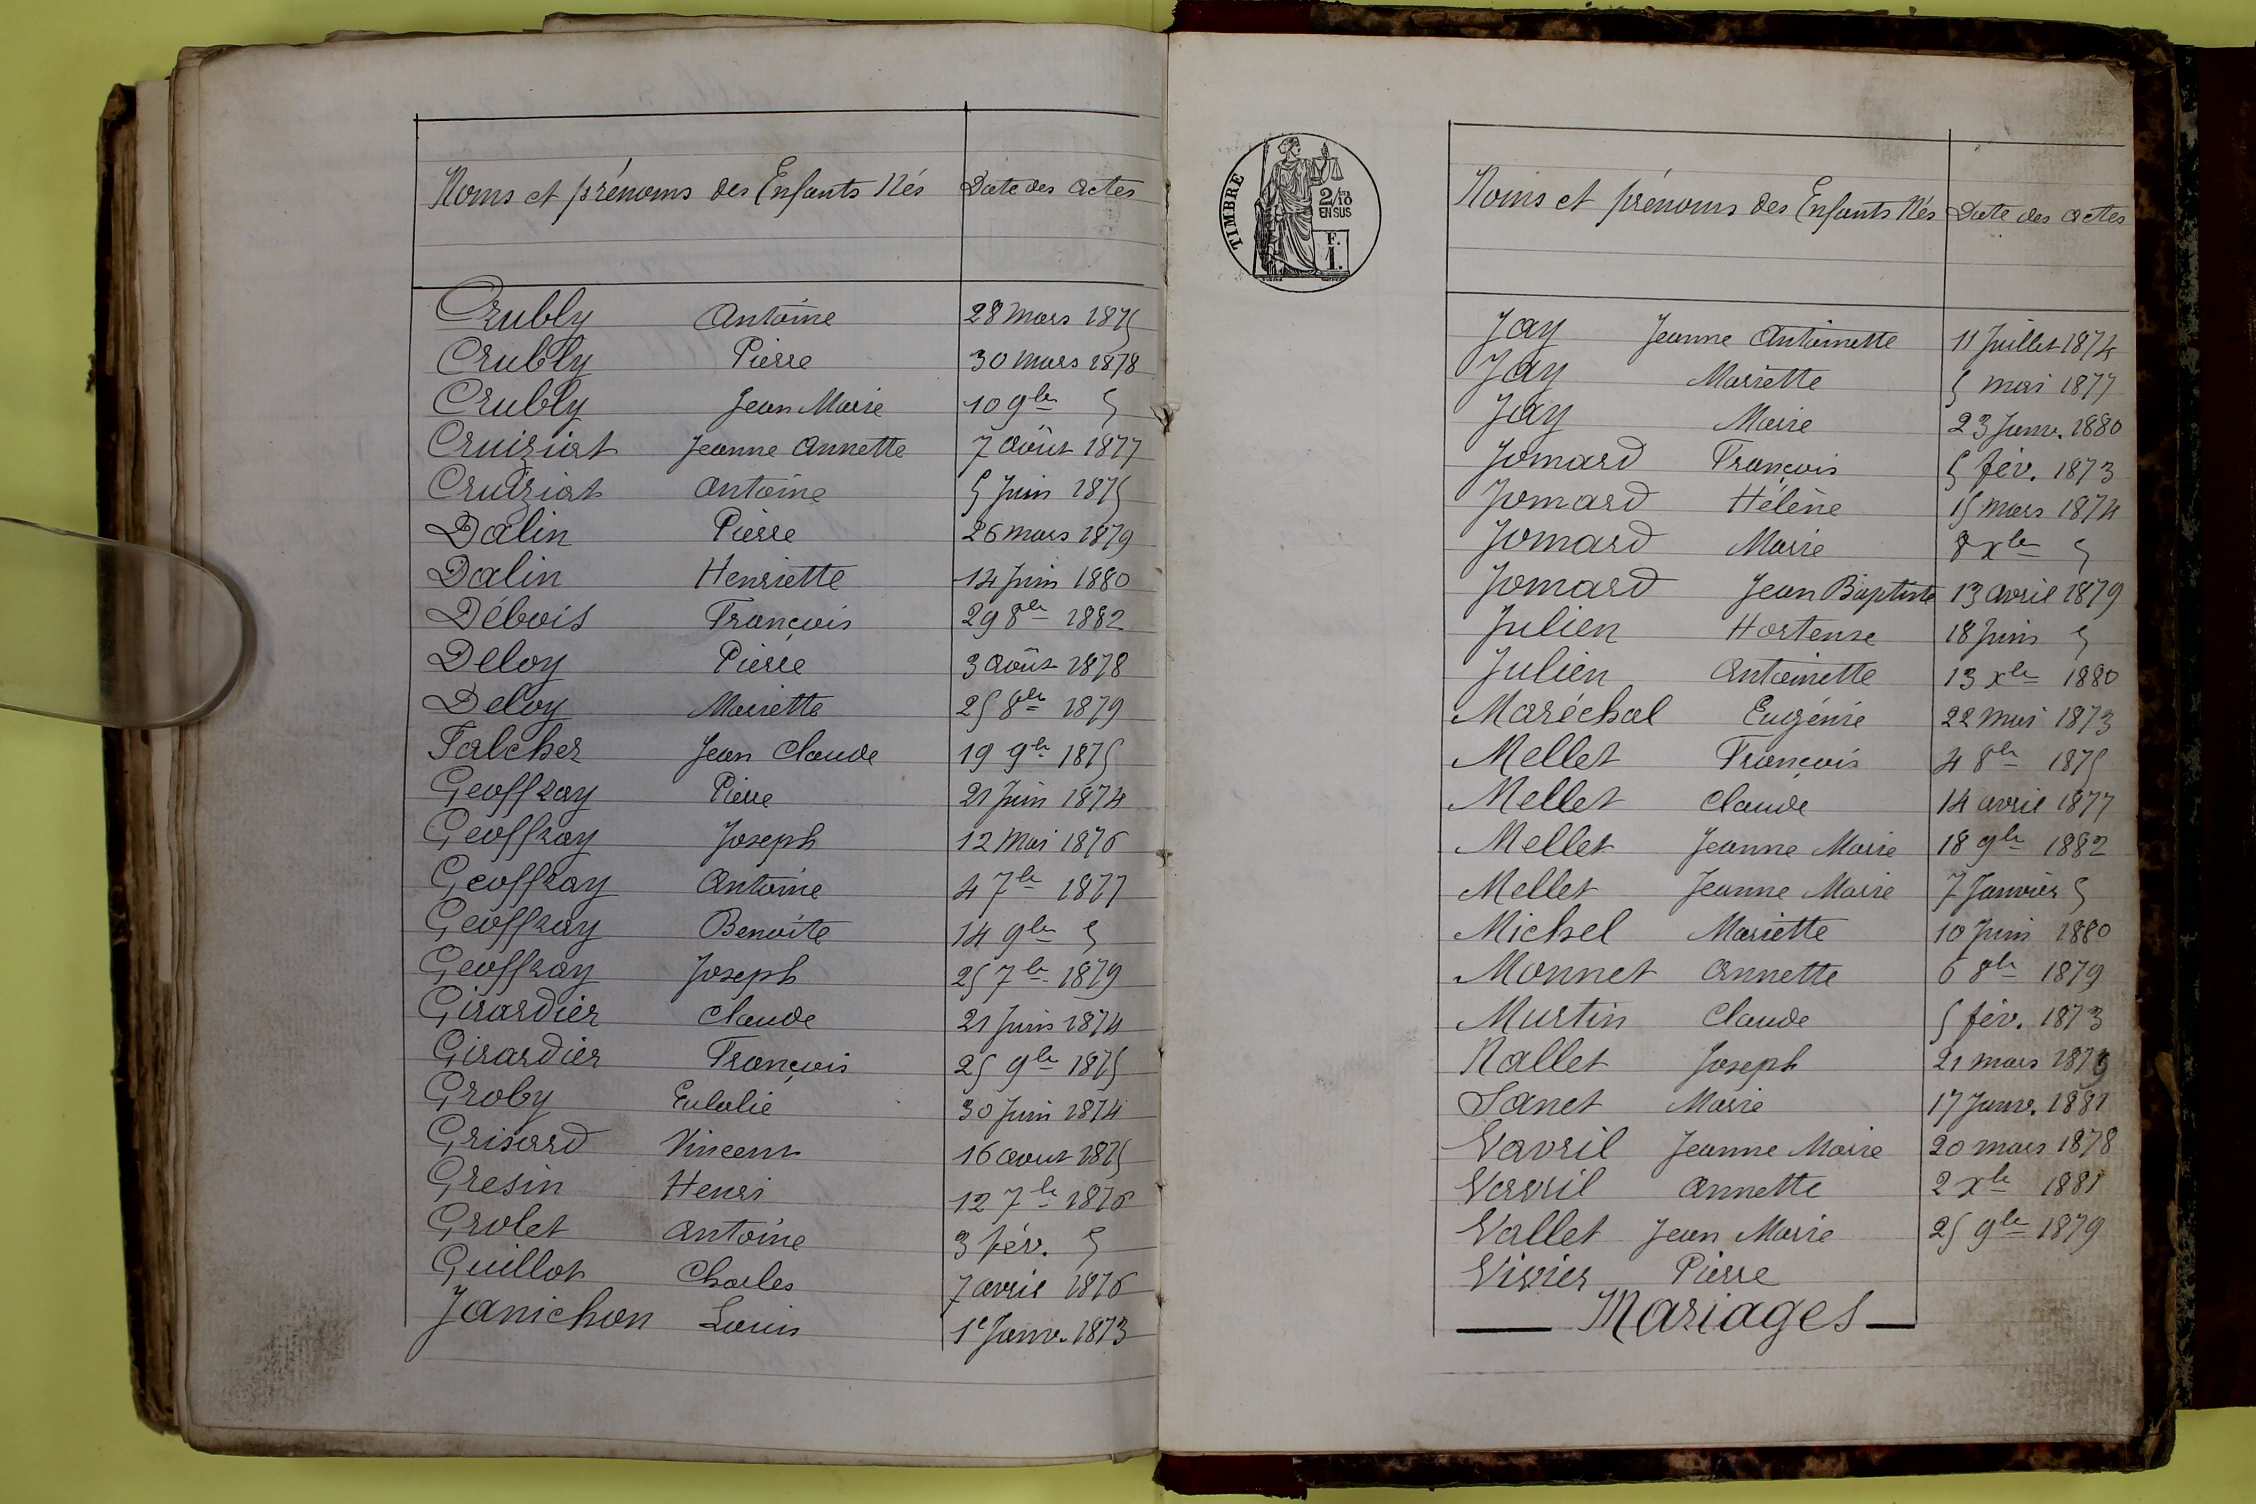 Noms et prénoms des Enfants Nés Date des actes
Crubly Antoine 28 Mars 1875
Crubly Pierre 30 mars 1878
Crubly Jean Marie 10 9bre
Cruiziat Jeanne Annette 7 Août 1877
Cruiziat Antoine 5 Juin 1875
Dalin Pierre 26 mars 1879
Dalin Henriette 14 Juin 1880
Débois François 29 8bre 1882
Deloy Pierre 3 Août 1878
Deloy Mariette 25 8bre 1879
Falcher Jean Claude 19 9bre 1875
Geoffray Pierre 21 Juin 1874
Geoffray Joseph 12 Mai 1876
Geoffray Antoine 4 7bre 1877
Geoffray Benoite 14 9bre
Geoffray Joseph 25 7bre 1879
Girardier Claude 21 Juin 1874
Girardier François 25 9bre 1875
Groby Eulalie 30 Juin 1874
Grisard Vincent 16 aout 1875
Gresin Henri 12 7bre 1876
Grolet Antoine 3 fév.
Guillot Charles 7 avril 1876
Janichon Louis 1e Janv. 1873
TIMBRE
2/10
EN SUS
F.
1.
Noms et prénoms des Enfants Nés Date des actes
Jay Jeanne Antoinette 11 Juillet 1874
Jay Mariette 5 mai 1877
Jay Marie 23 Janv. 1880
Jomard François 5 fév. 1873
Jomard Hélène 15 mars 1874
Jomard Marie 8 xbre
Jomard Jean Baptiste 13 avril 1879
Julien Hortense 18 Juin
Julien Antoinette 13 xbre 1880
Maréchal Eugénie 22 mai 1873
Mellet François 4 8bre 1875
Mellet Claude 14 avril 1877
Mellet Jeanne Marie 18 9bre 1882
Mellet Jeanne Marie 7 Janvier
Michel Mariette 10 Juin 1880
Monnet Annette 6 8bre 1879
Murtin Claude 5 fév. 1873
Nallet Joseph 21 mars
Sanet Marie 17 Janv. 1881
Vavril Jeanne Marie 20 mars 1878
Vavril Annette 2 xbre 1881
Vallet Jean Marie 25 9bre 1879
Vivier Pierre
Mariages